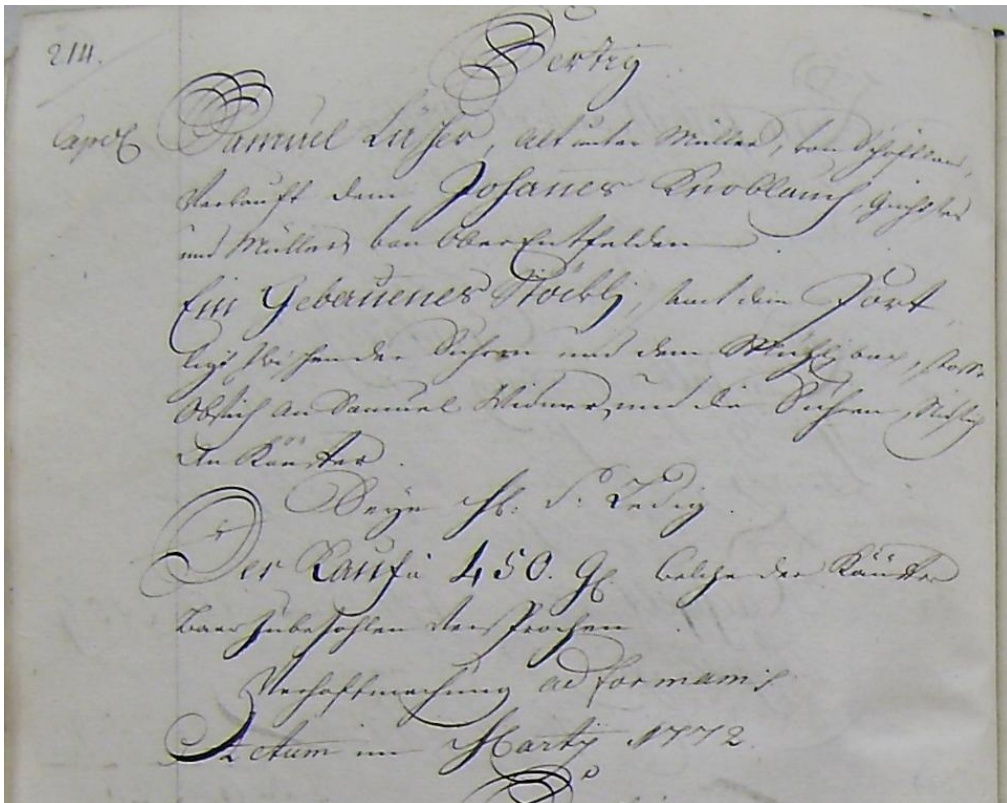 214.
Fertig
Capol Samuel Lüscher, alt unter Müller, von Schöftland,
Verkauft dem Johannes Knoblauch, Grichtsäs
und Müller von Ober Entfelden
Ein Gebauenes Stöckli, samt dem Fort
ligt zwischen der Suhren und dem Mühlibach, stosst
Obsich an Samuel Widmer, und die Suhren, Nidsich
An Käuffer.
Seye Zb: F: Ledig.
Der Kauf ist 450. Gl welche der Käuffer
Baar zubezahlen Versprochen
Verhaftmachung ad formam
Actum im Martij 1772.